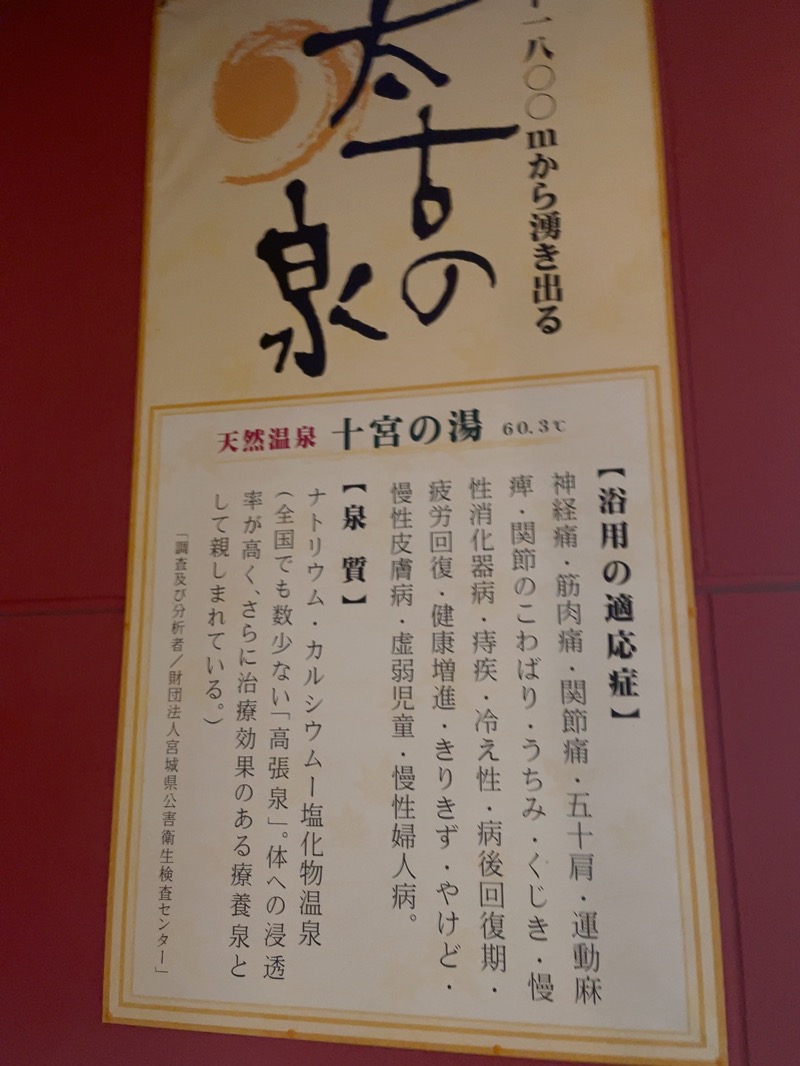 一八〇〇mから湧き出る
太古の
泉
天然温泉 十宮の湯 60.3℃
【浴用の適応症】
神経痛・筋肉痛・関節痛・五十肩・運動麻
痺・関節のこわばり・うちみ・くじき・慢
性消化器病・痔疾・冷え性・病後回復期・
疲労回復・健康増進・きりきず・やけど・
慢性皮膚病・虚弱児童・慢性婦人病。
【泉質】
ナトリウム・カルシウムー塩化物温泉
(全国でも数少ない「高張泉」。体への浸透
率が高く、さらに治療効果のある療養泉と
して親しまれている。)
「調査及び分析者/財団法人宮城県公害衛生検査センター」